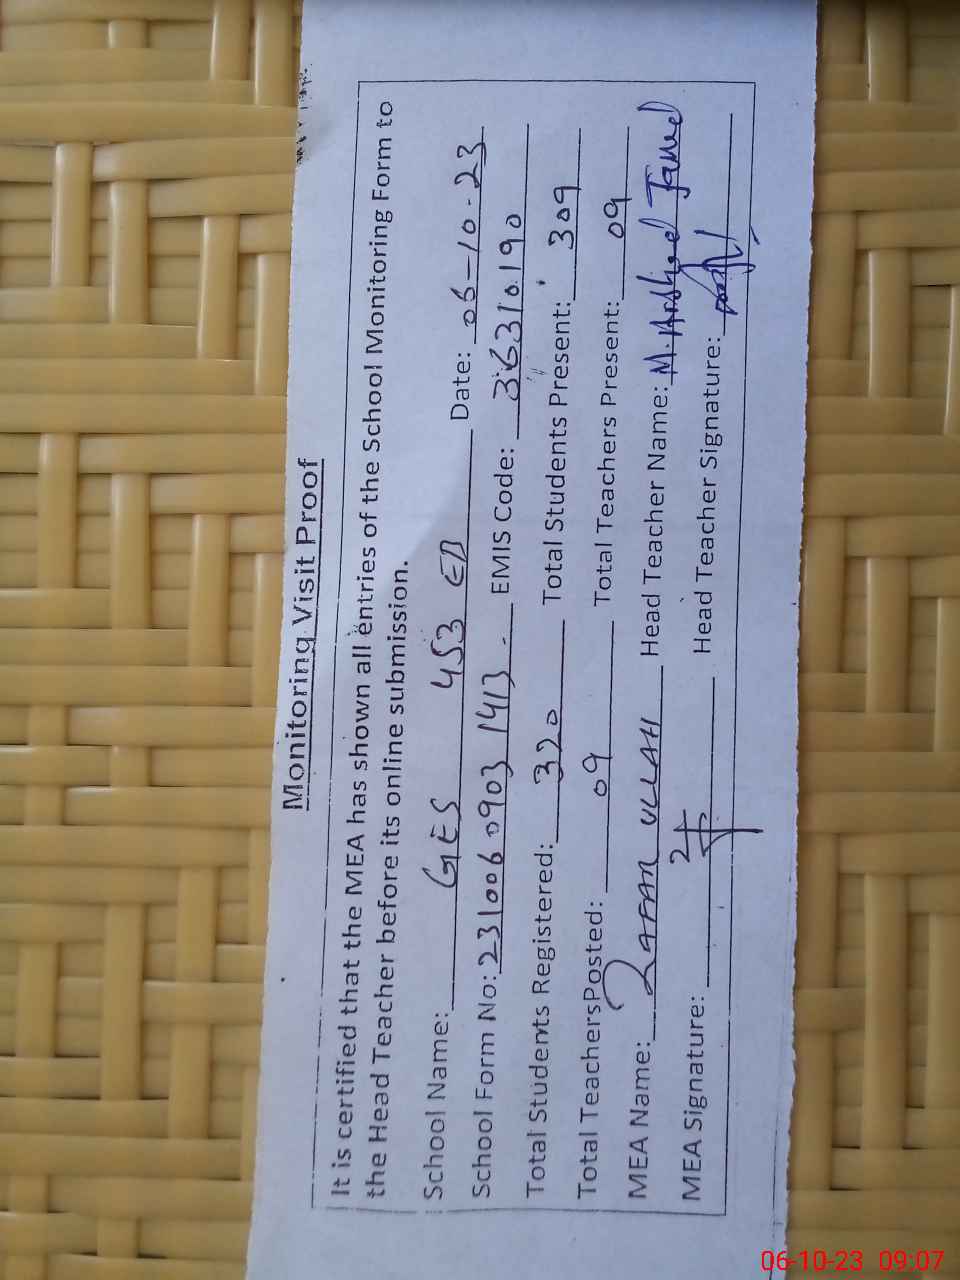 Monitoring Visit Proof
It is certified that the MEA has shown all entries of the School Monitoring Form to
the Head Teacher before its online submission.
School Name: GES 453 EB Date: 06-10-23
School Form No: 231006 0903 1413 - EMIS Code: 36310190
Total Students Registered: 320 Total Students Present: 309
Total Teachers Posted: 09 Total Teachers Present: 09
MEA Name: ZAFAR ULLAH Head Teacher Name: M. Arshad Javed
MEA Signature: Head Teacher Signature:
06-10-23 09:07